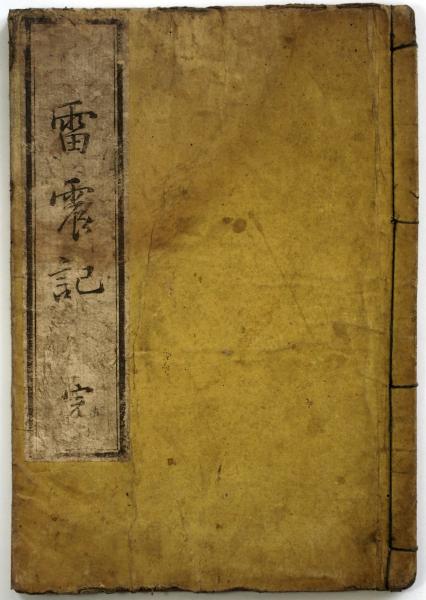 雷震記 完